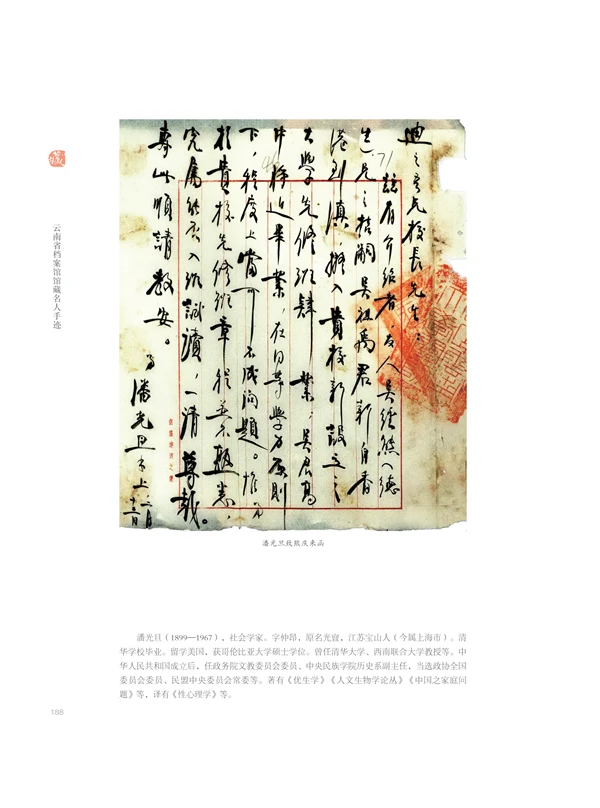 迪之吾兄校長先生：
茲有介紹者，友人吳經熊（德
生）兄之括嗣吳祖禹君新自香
港到滇，擬入貴校新設之
大學先修班肄業，吳君高
中將近畢業，在同等學力原則
下，程度上當可不成問題。惟
於貴校先修班章程並不熟悉，
專此順請教安。
弟潘光旦 上
藏
云南省档案馆馆藏名人手迹
潘光旦致熊庆来函
潘光旦（1899—1967），社会学家。字仲昂，原名光亶，江苏宝山人（今属上海市）。清
华学校毕业。留学美国，获哥伦比亚大学硕士学位。曾任清华大学、西南联合大学教授等。中
华人民共和国成立后，任政务院文教委员会委员、中央民族学院历史系副主任，当选政协全国
委员会委员、民盟中央委员会常委等。著有《优生学》《人文生物学论丛》《中国之家庭问
题》等，译有《性心理学》等。
188